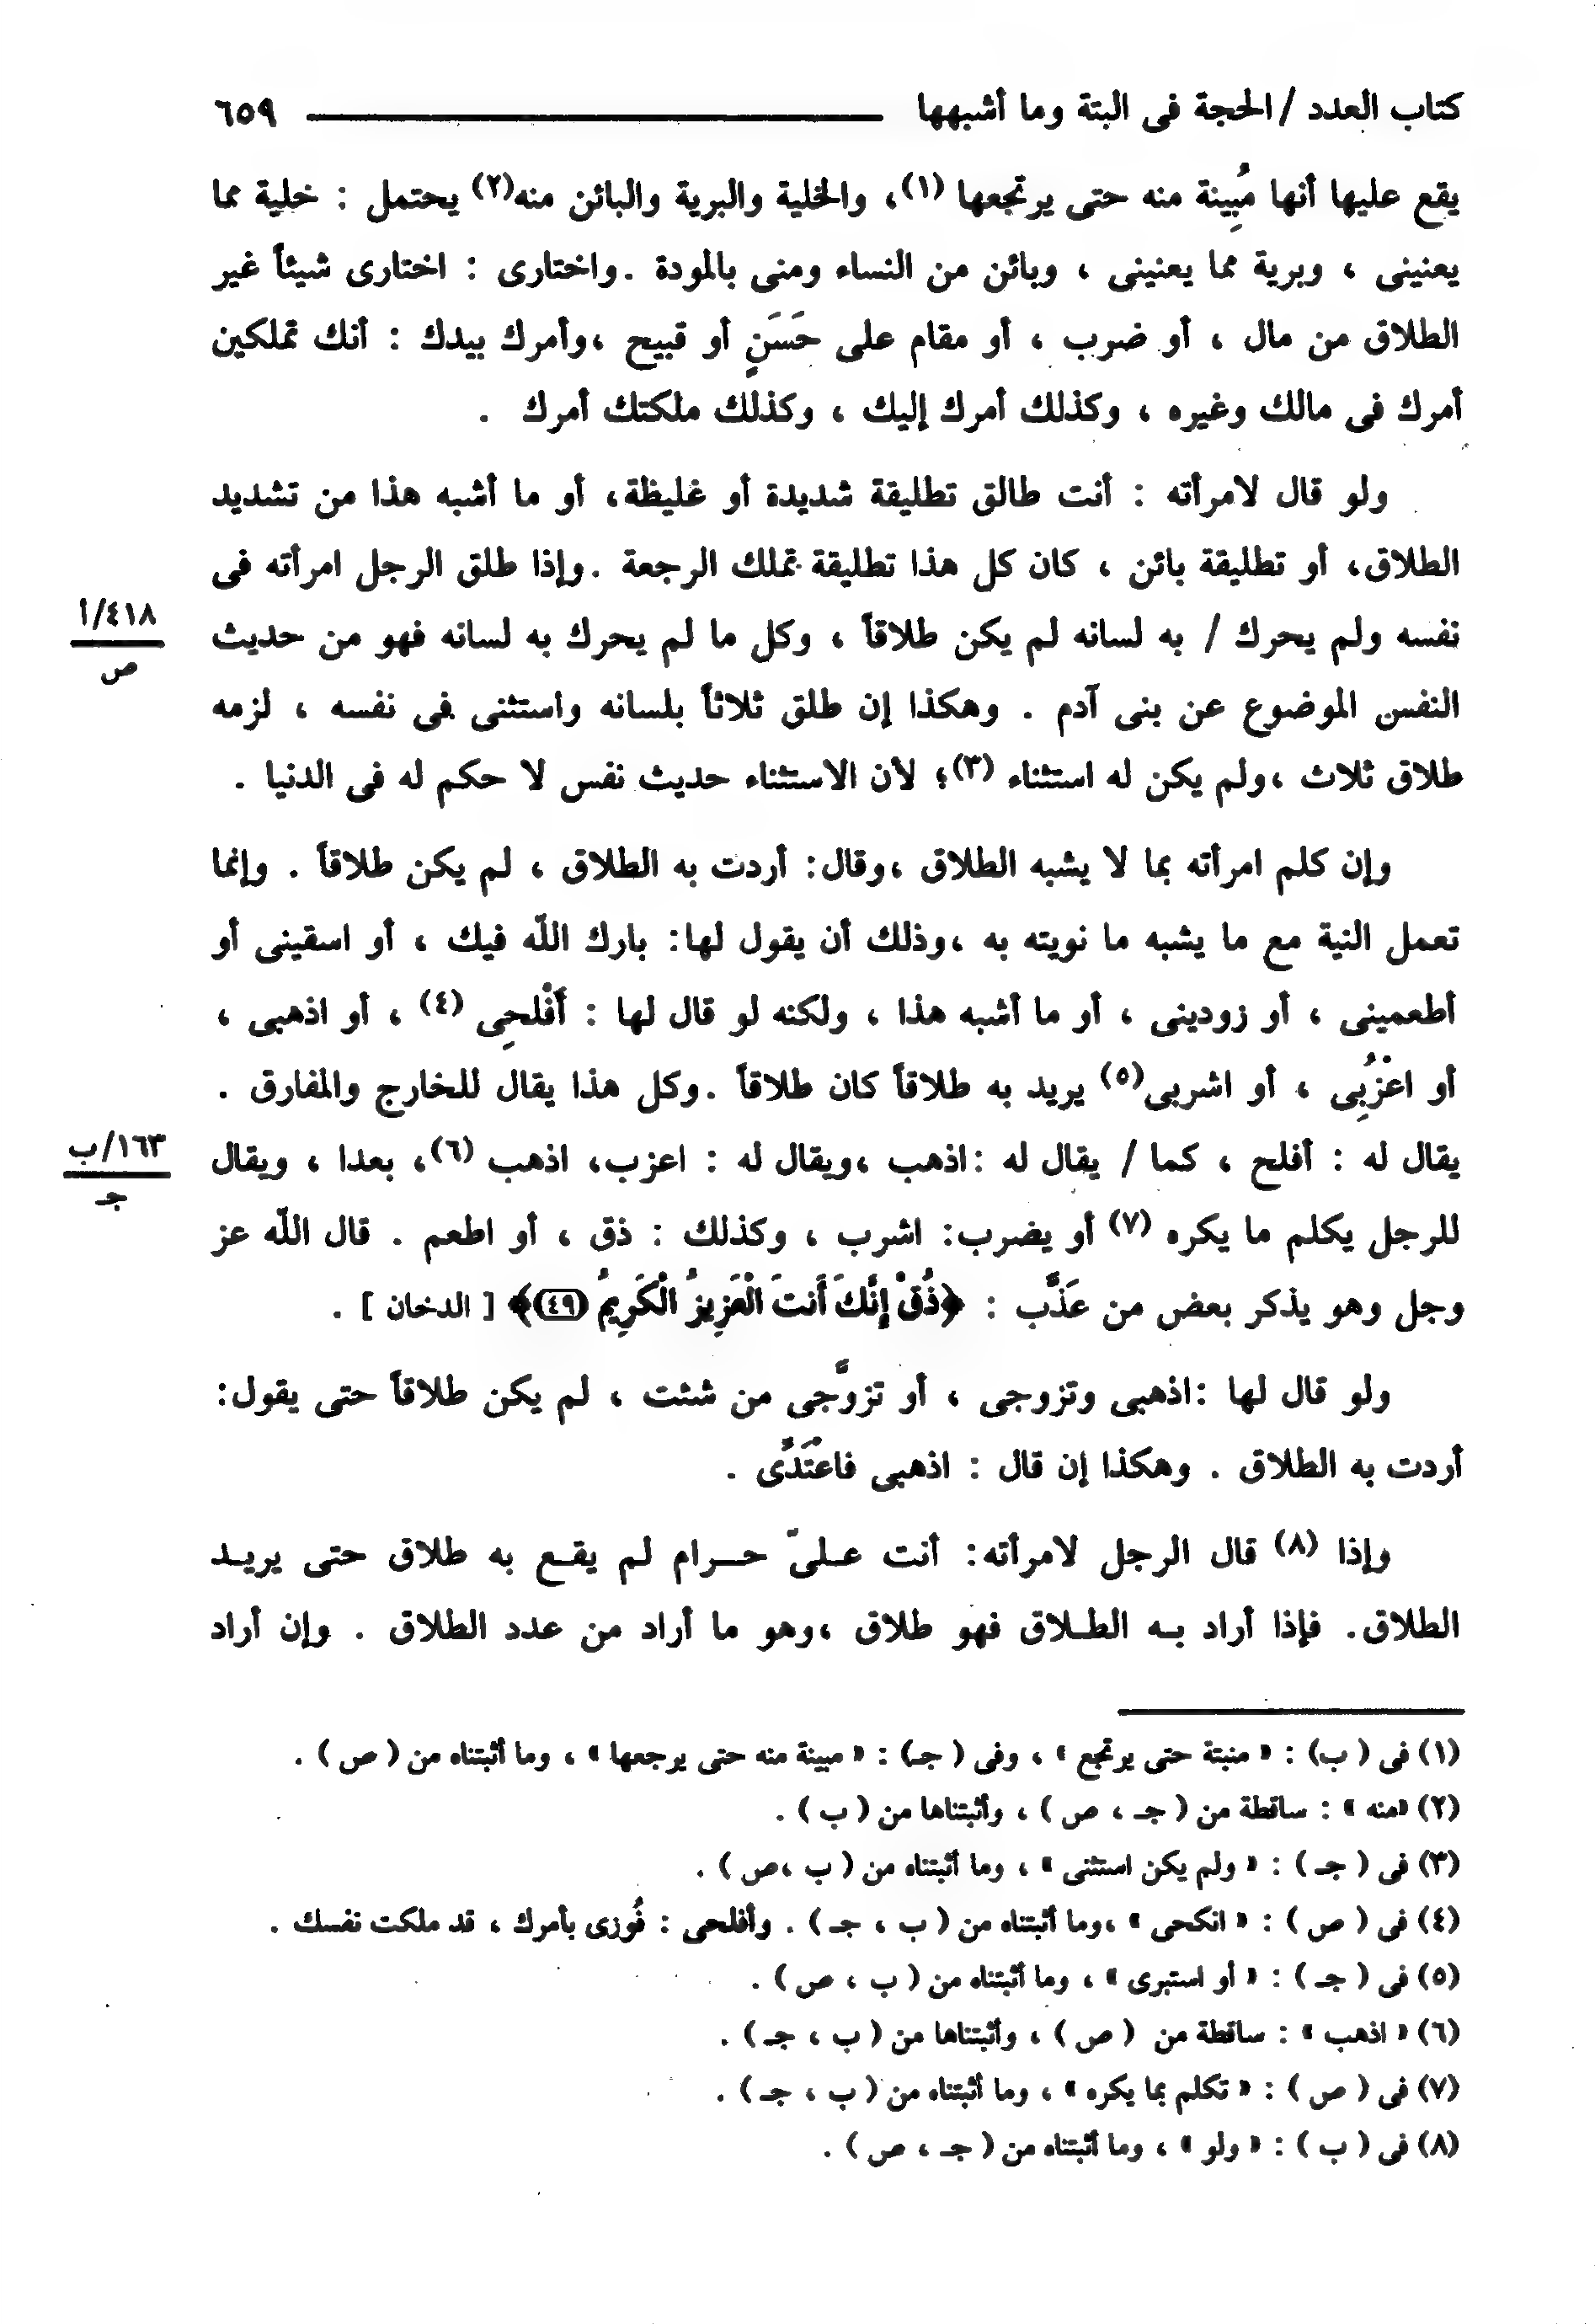 كتاب العدد / الحجة فى البتة وما أشبهها ٦٥٩
يقع عليها أنها مُبِينة منه حتى يرتجعها (١)، والخلية والبرية والبائن منه(٢) يحتمل : خلية مما
يعنينى ، وبرية مما يعنينى ، وبائن من النساء ومنى بالمودة . واختارى : اختارى شيئاً غير
الطلاق من مال ، أو ضرب ، أو مقام على حَسَنٍ أو قبيح ،وأمرك بيدك : أنك تملكين
أمرك فى مالك وغيره ، وكذلك أمرك إليك ، وكذلك ملكتك أمرك .
ولو قال لامرأته : أنت طالق تطليقة شديدة أو غليظة، أو ما أشبه هذا من تشديد
الطلاق، أو تطليقة بائن ، كان كل هذا تطليقة تملك الرجعة .وإذا طلق الرجل امرأته فى
نفسه ولم يحرك / به لسانه لم يكن طلاقاً ، وكل ما لم يحرك به لسانه فهو من حديث
٤١٨/أ
ص
النفس الموضوع عن بنى آدم . وهكذا إن طلق ثلاثاً بلسانه واستثنى فى نفسه ، لزمه
طلاق ثلاث ،ولم يكن له استثناء (٣)؛ لأن الاستثناء حديث نفس لا حكم له فى الدنيا .
وإن كلم امرأته بما لا يشبه الطلاق ،وقال: أردت به الطلاق ، لم يكن طلاقاً . وإنما
تعمل النية مع ما يشبه ما نويته به ،وذلك أن يقول لها: بارك اللّه فيك ، أو اسقينى أو
أطعمينى ، أو زودينى ، أو ما أشبه هذا ، ولكنه لو قال لها : أَفْلحِى (٤) ، أو اذهبى ،
أو اعْزُبِى ، أو اشربى(٥) يريد به طلاقاً كان طلاقاً .وكل هذا يقال للخارج والمفارق .
يقال له : أفلح ، كما / يقال له :اذهب ،ويقال له : اعزب، اذهب (٦)، بعدا ، ويقال
١٦٣/ب
جـ
للرجل يكلم ما يكره (٧) أو يضرب: اشرب ، وكذلك : ذق ، أو اطعم . قال اللّه عز
وجل وهو يذكر بعض من عَذَّب : ﴿ذُقْ إِنَّكَ أَنتَ الْعَزِيزُ الْكَرِيمُ (٤٩)﴾ [ الدخان ] .
ولو قال لها :اذهبى وتزوجى ، أو تزوَّجى من شئت ، لم يكن طلاقاً حتى يقول:
أردت به الطلاق . وهكذا إن قال : اذهبى فاعْتَدَّى .
وإذا (٨) قال الرجل لامرأته: أنت عـلىّ حـــرام لـم يقـع به طلاق حتى يريـد
الطلاق. فإذا أراد بـه الطـلاق فهو طلاق ،وهو ما أراد من عدد الطلاق . وإن أراد
(١) فى ( ب) : « منبتة حتى يرتجع » ، وفى ( جـ) : « مبينة منه حتى يرجعها » ، وما أثبتناه من ( ص ) .
(٢) «منه » : ساقطة من ( جـ ، ص ) ، وأثبتناها من ( ب ) .
(٣) فى ( جـ ) : « ولم يكن استثنى » ، وما أثبتناه من ( ب ،ص ) .
(٤) فى ( ص ) : « انكحى » ،وما أثبتناه من ( ب ، جـ ) . وأفلحى : فُوزى بأمرك ، قد ملكت نفسك .
(٥) فى ( جـ ) : « أو استبرى » ، وما أثبتناه من ( ب ، ص ) .
(٦) « اذهب » : ساقطة من ( ص ) ، وأثبتناها من ( ب ، جـ ) .
(٧) فى ( ص ) : « تكلم بما يكره » ، وما أثبتناه من ( ب ، جـ ) .
(٨) فى ( ب ) : « ولو » ، وما أثبتناه من ( جـ ، ص ) .